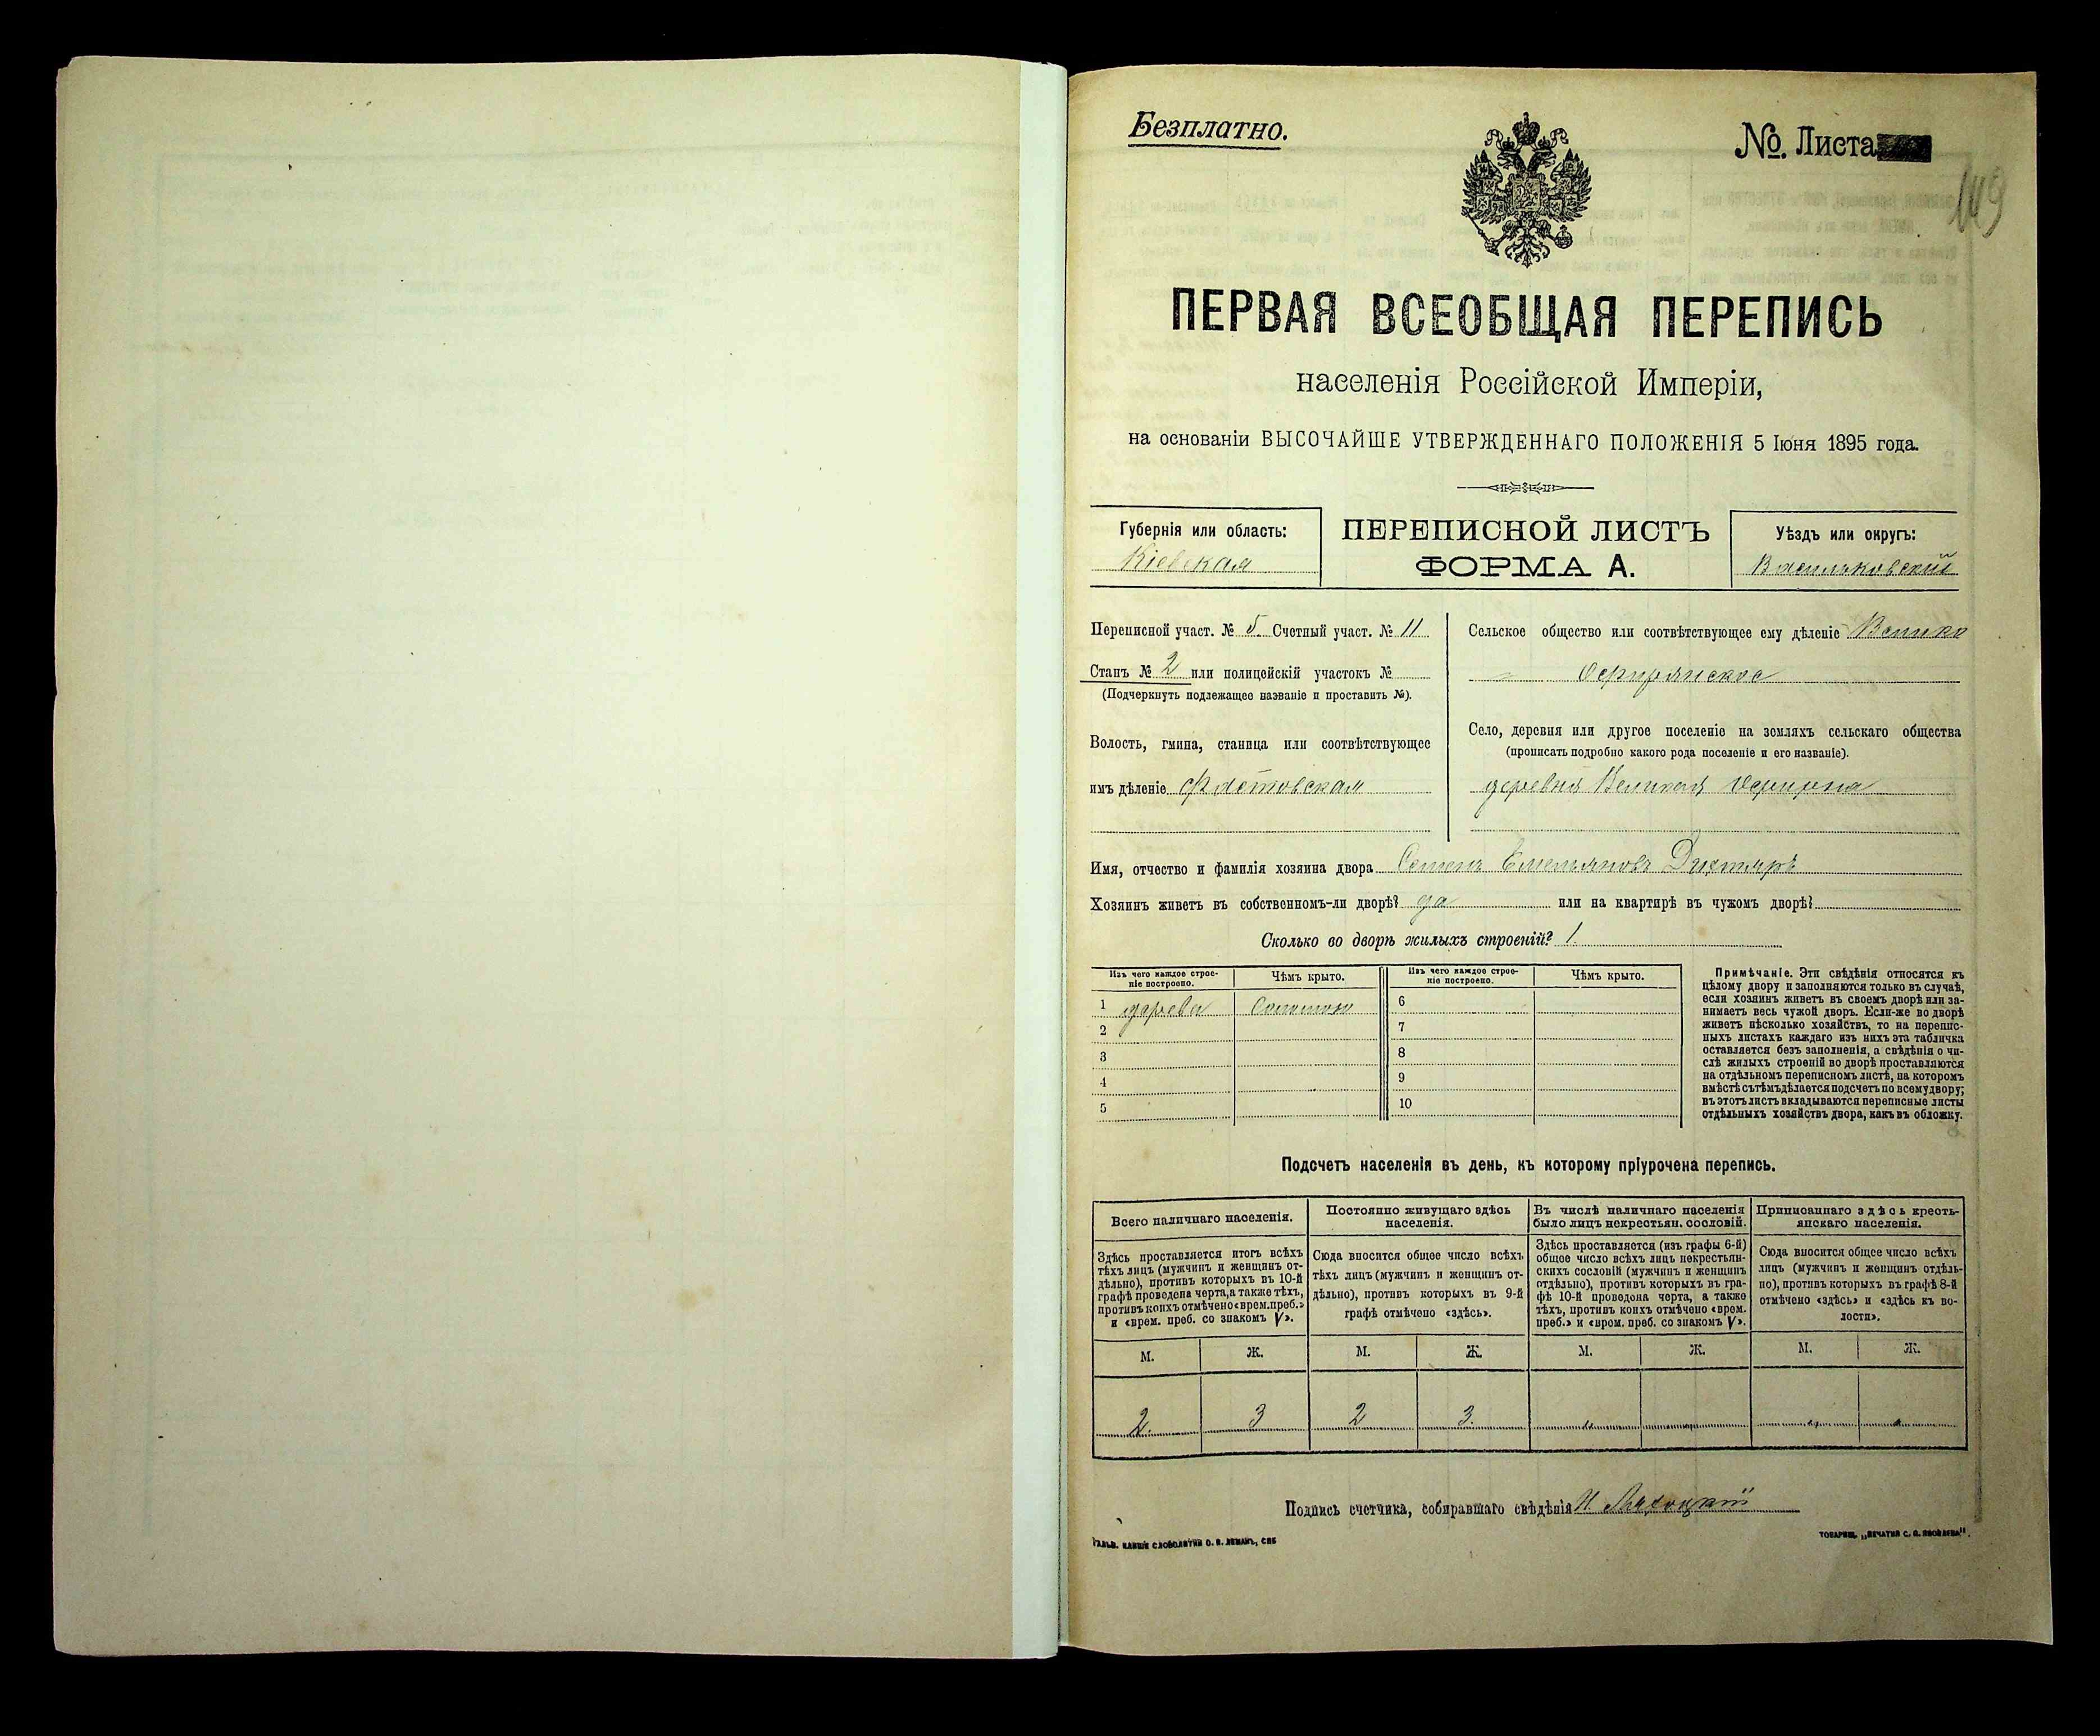 Безплатно.
№. Листа
149
ПЕРВАЯ ВСЕОБЩАЯ ПЕРЕПИСЬ
населенія Россійской Имперіи,
на основаніи ВЫСОЧАЙШЕ УТВЕРЖДЕННАГО ПОЛОЖЕНІЯ 5 Іюня 1895 года.
Губернія или область:
Кіевская
ПЕРЕПИСНОЙ ЛИСТЪ
ФОРМА А.
Уѣздъ или округъ:
Васильковскій
Переписной участ. № 5. Счетный участ. № 11
Станъ № 2 или полицейскій участокъ №
(Подчеркнуть подлежащее названіе и проставить №).
Волость, гмина, станица или соотвѣтствующее
имъ дѣленіе Фастовская
Сельское общество или соотвѣтствующее ему дѣленіе Велико
Село, деревня или другое поселеніе на земляхъ сельскаго общества
(прописать подробно какого рода поселеніе и его названіе).
деревня Великая
Имя, отчество и фамилія хозяина двора Семенъ Емельяновъ Дихтярь
Хозяинъ живетъ въ собственномъ-ли дворѣ? да или на квартирѣ въ чужомъ дворѣ?
Сколько во дворѣ жилыхъ строеній? 1.
Изъ чего каждое строе-
ніе построено.
Чѣмъ крыто.
Изъ чего каждое строе-
ніе построено.
Чѣмъ крыто.
1 дерева Соломою
2
3
4
5
6
7
8
9
10
Примѣчаніе. Эти свѣдѣнія относятся къ
цѣлому двору и заполняются только въ случаѣ,
если хозяинъ живетъ въ своемъ дворѣ или за-
нимаетъ весь чужой дворъ. Если-же во дворѣ
живетъ нѣсколько хозяйствъ, то на перепис-
ныхъ листахъ каждаго изъ нихъ эта табличка
оставляется безъ заполненія, а свѣдѣнія о чи-
слѣ жилыхъ строеній во дворѣ проставляются
на отдѣльномъ переписномъ листѣ, на которомъ
вмѣстѣ съ тѣмъ дѣлается подсчетъ по всему двору;
въ этотъ листъ вкладываются переписные листы
отдѣльныхъ хозяйствъ двора, какъ въ обложку.
Подсчетъ населенія въ день, къ которому пріурочена перепись.
Всего наличнаго населенія.
Здѣсь проставляется итогъ всѣхъ
тѣхъ лицъ (мужчинъ и женщинъ от-
дѣльно), противъ которыхъ въ 10-й
графѣ проведена черта, а также тѣхъ,
противъ коихъ отмѣчено «врем. преб.»
и «врем. преб. со знакомъ V».
Постоянно живущаго здѣсь
населенія.
Сюда вносится общее число всѣхъ
тѣхъ лицъ (мужчинъ и женщинъ от-
дѣльно), противъ которыхъ въ 9-й
графѣ отмѣчено «здѣсь».
Въ числѣ наличнаго населенія
было лицъ некрестьян. сословій.
Здѣсь проставляется (изъ графы 6-й)
общее число всѣхъ лицъ некрестьян-
скихъ сословій (мужчинъ и женщинъ
отдѣльно), противъ которыхъ въ гра-
фѣ 10-й проведена черта, а также
тѣхъ, противъ коихъ отмѣчено «врем.
преб.» и «врем. преб. со знакомъ V».
Приписаннаго здѣсь кресть-
янскаго населенія.
Сюда вносится общее число всѣхъ
лицъ (мужчинъ и женщинъ отдѣль-
но), противъ которыхъ въ графѣ 8-й
отмѣчено «здѣсь» и «здѣсь къ во-
лости».
М. Ж. М. Ж. М. Ж. М. Ж.
2. 3 2 3. „ „ „ „
Подпись счетчика, собиравшаго свѣдѣнія
ГАЛЬВ. КЛИШЕ СЛОВОЛИТНИ О. И. ЛЕМАНЪ, СПБ
ТОВАРИЩ. „ПЕЧАТНЯ С. П. ЯКОВЛЕВА“.